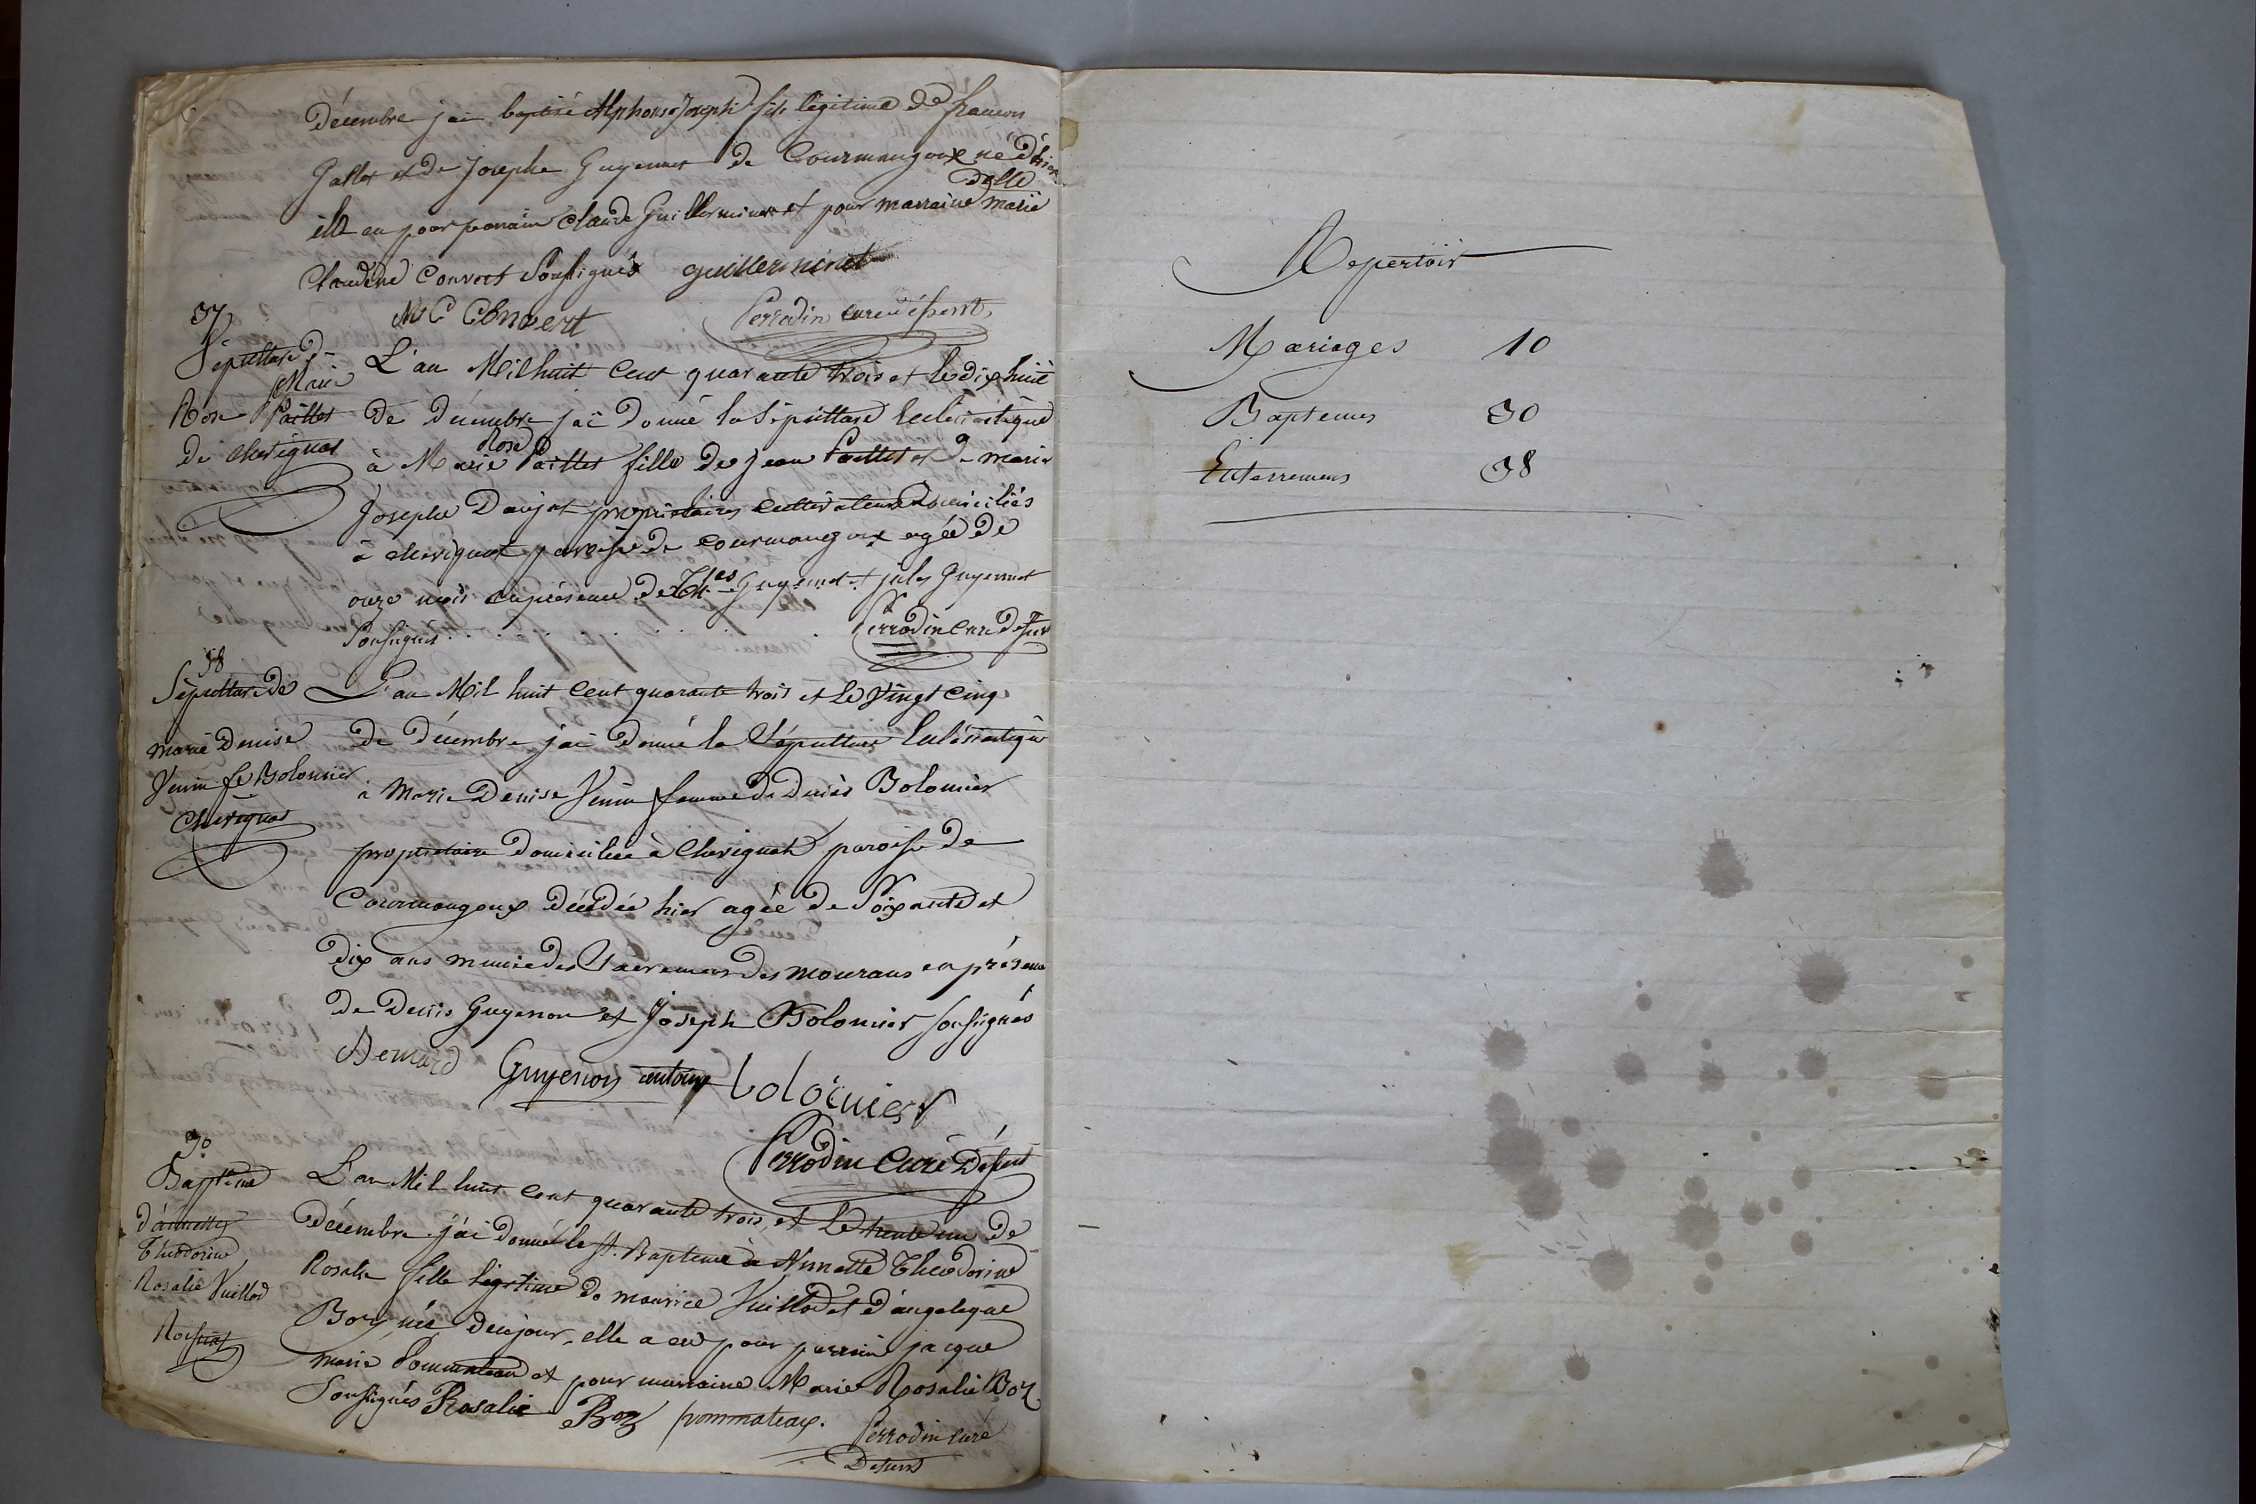 décembre j'ai baptisé Alphonse Joseph fils légitime de francois
Gallet et de Josephe Guyennet de Courmangoux né d'hier
il a eu pour parrain Claude Guillerminet et pour marraine delle marie
Claudine Convert Soussignés guillerminet
M C Convert Perrodin curé desservt
37
Sépulture de
Marie
Rose Paillet
de Chevignat
L'an Mil huit Cent quarante trois et le dix huit
de décembre j'ai donné la Sépulture Eclésiastique
à Marie Rose Paillet fille de Jean Paillet et de marie
Josephe Daujat propriétaires cultivateurs domiciliés
à chevignat paroisse de Courmangoux agée de
onze mois en présence de Guyennet et jules Guyennet
Soussignés . . . . . . . . Perrodin Curé desser
38
Sépulture de
marie Denise
Venin fe Bolomier
Chevignat
L'an Mil huit Cent quarante trois et le Vingt Cinq
de décembre j'ai donné la Sépulture Eclésiastique
à Marie Denise Venin femme de Denis Bolomier
propriétaire domiciliée à Chevignat paroisse de
Courmangoux décédée hier agée de Soixante et
dix ans munie des Sacremens des mourans en présence
de Denis Guyenon et Joseph Bolomier soussignés
Bernard Guyenon antoine bolomier
Perrodin Curé desservt
30
Baptême
d'annette
Théodorine
Rosalie Vuillod
Roissiat
L'an Mil huit cent quarante trois et Le trente un de
décembre j'ai donné le st. Bapteme à Annette Théodorine
Rosalie fille légitime de maurice Vuillod et d'angelique
Boz née de ce jour, elle a eu pour parrain jacque
marie Pommateau et pour marraine Marie Rosalie Boz
Soussignés Rosalie Boz pommateau. Perrodin curé
Desserv
Repertoir
Mariages 10
Baptemes 30
Enterremens 38